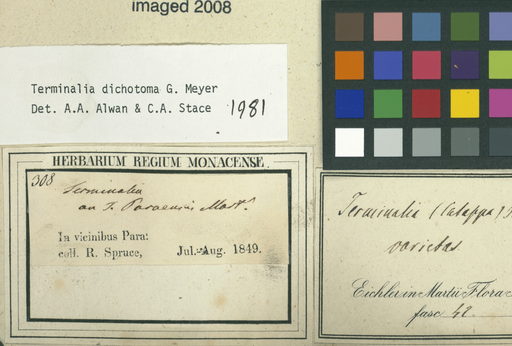 imaged 2008
Terminalia dichotoma G. Meyer
Det. A.A. Alwan & C.A. Stace 1981
HERBARIUM REGIUM MONACENSE.
308
Terminalia
an T. Paraensis Mart.
In vicinibus Para:
coll. R. Spruce, Jul.-Aug. 1849.
Terminalia (Catappa)
varietas
Eichler in Martii Flora
fasc 42